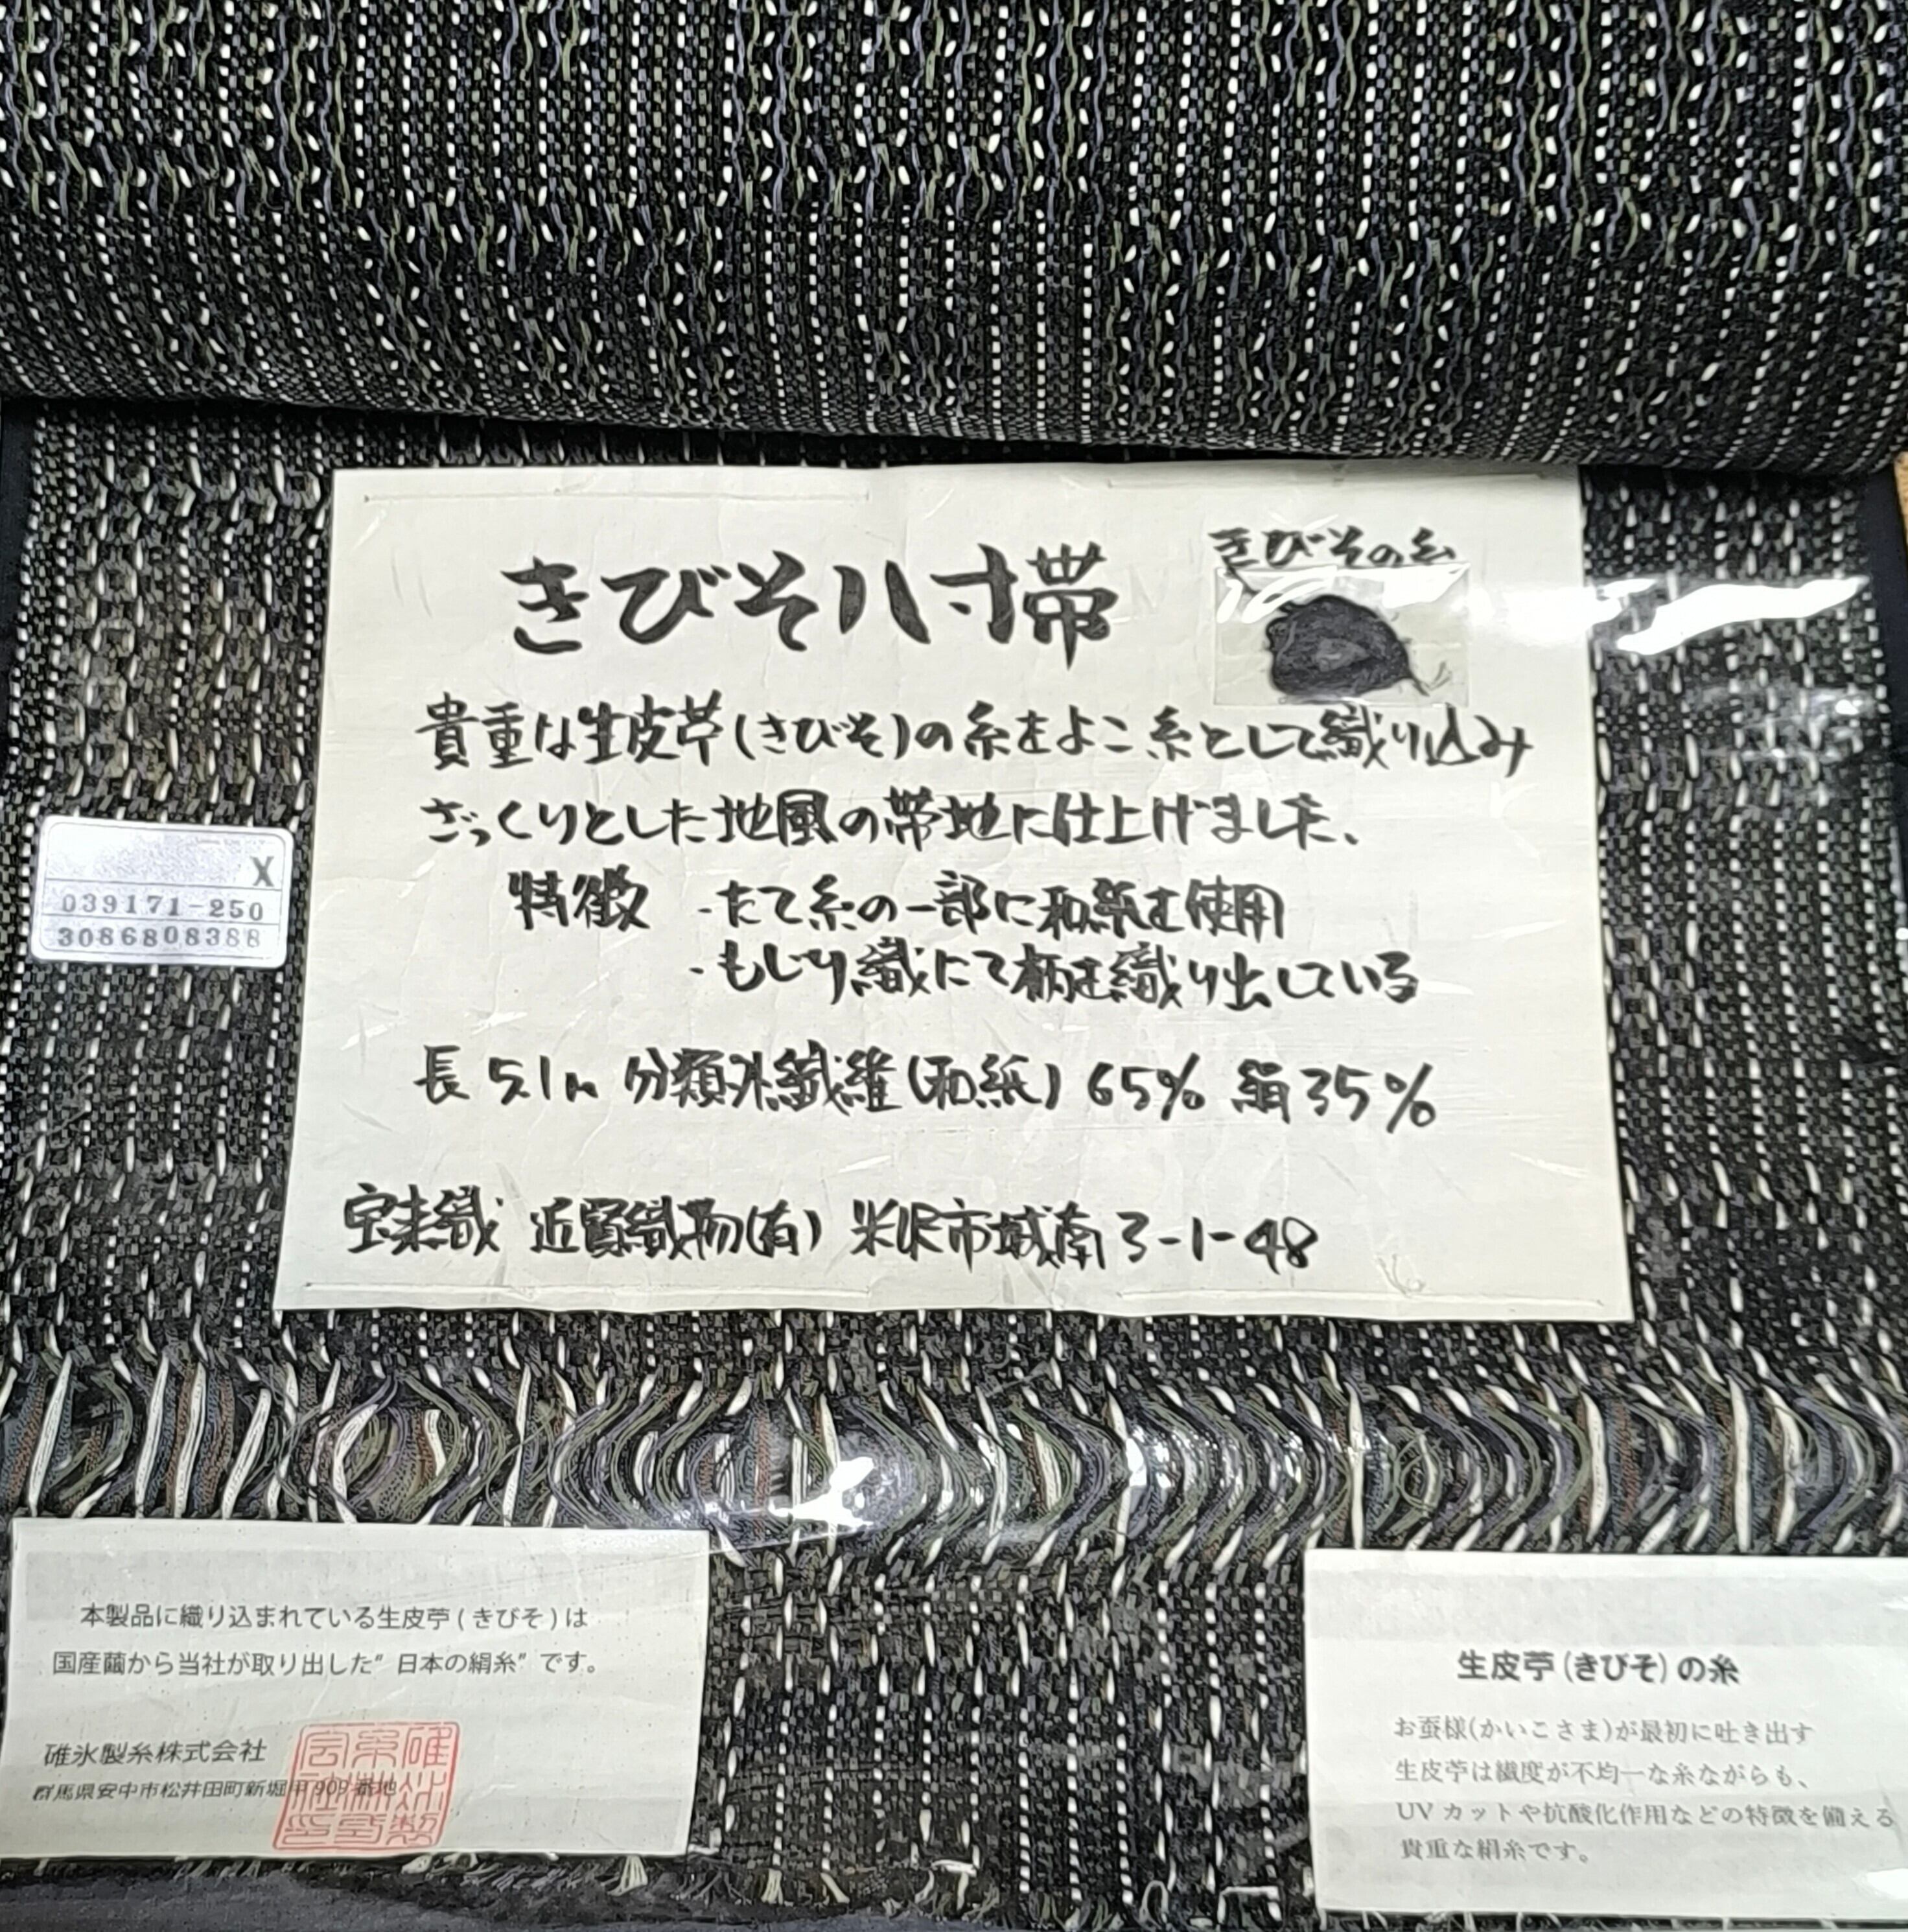 きびそ八寸帯
きびその糸
貴重な生皮苧(きびそ)の糸をよこ糸として織り込み
ざっくりとした地風の帯地に仕上げました、
特徴 ・たて糸の一部に和紙を使用
・もじり織にて柄を織り出している
長 5.1m 分類外繊維(和紙) 65% 絹35%
宝来織 近賢織物(有) 米沢市城南3-1-48
X
039171-250
3086808388
本製品に織り込まれている生皮苧(きびそ)は
国産繭から当社が取り出した"日本の絹糸"です。
碓氷製糸株式会社
群馬県安中市松井田町新堀甲909番地
生皮苧(きびそ)の糸
お蚕様(かいこさま)が最初に吐き出す
生皮苧は繊度が不均一な糸ながらも、
UVカットや抗酸化作用などの特徴を備える
貴重な絹糸です。